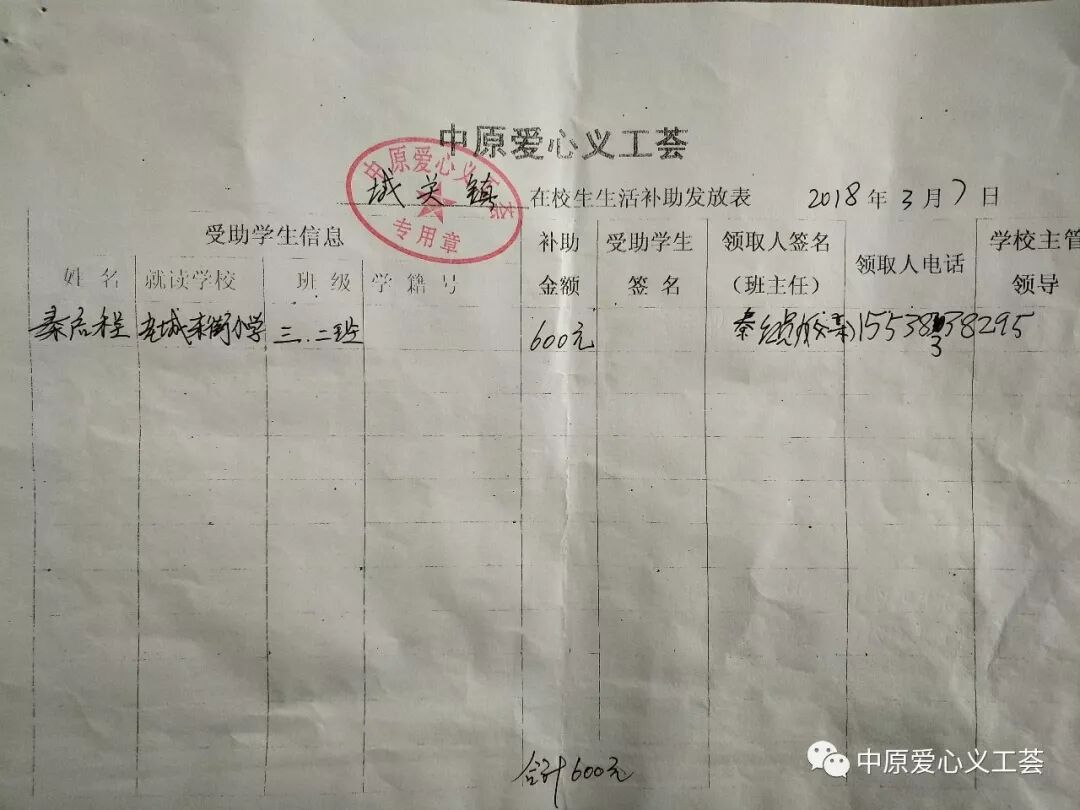 中原爱心义工荟
中原爱心义工荟
专用章
城关镇 在校生生活补助发放表 2018年3月7日
受助学生信息 补助金额 受助学生签名 领取人签名（班主任） 领取人电话 学校主管领导
姓名 就读学校 班级 学籍号
秦启程 老城东街小学 三.二班 600元 秦 父亲 15538338295
合计600元
中原爱心义工荟